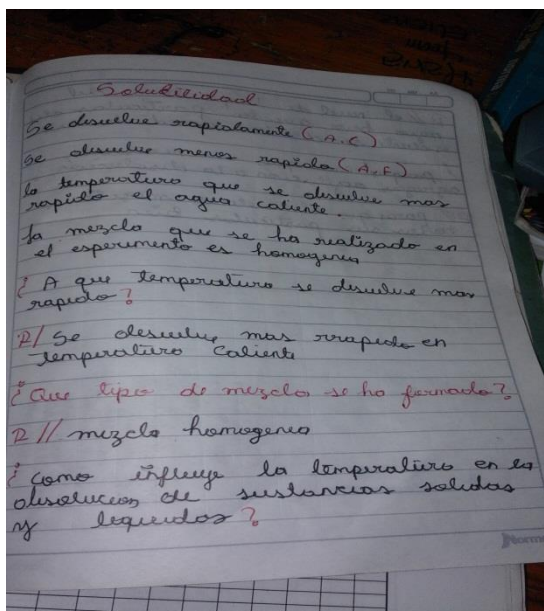 Solubilidad
Se disuelve rapidamente (A.C)
Se disuelve menos rapida (A.F)
la temperatura que se disuelve mas
rapido el agua caliente.
La mezcla que se ha realizado en
el esperimento es homogenea
¿ A que temperatura se disuelve mas
rapido?
R/ Se desuelve mas rrapido en
temperatura caliente
¿Que tipo de mezcla se ha formado?
R// mezcla homogenea
¿ como influye la temperatura en la
disolucion de sustancias solidas
y liquidos?
Norma